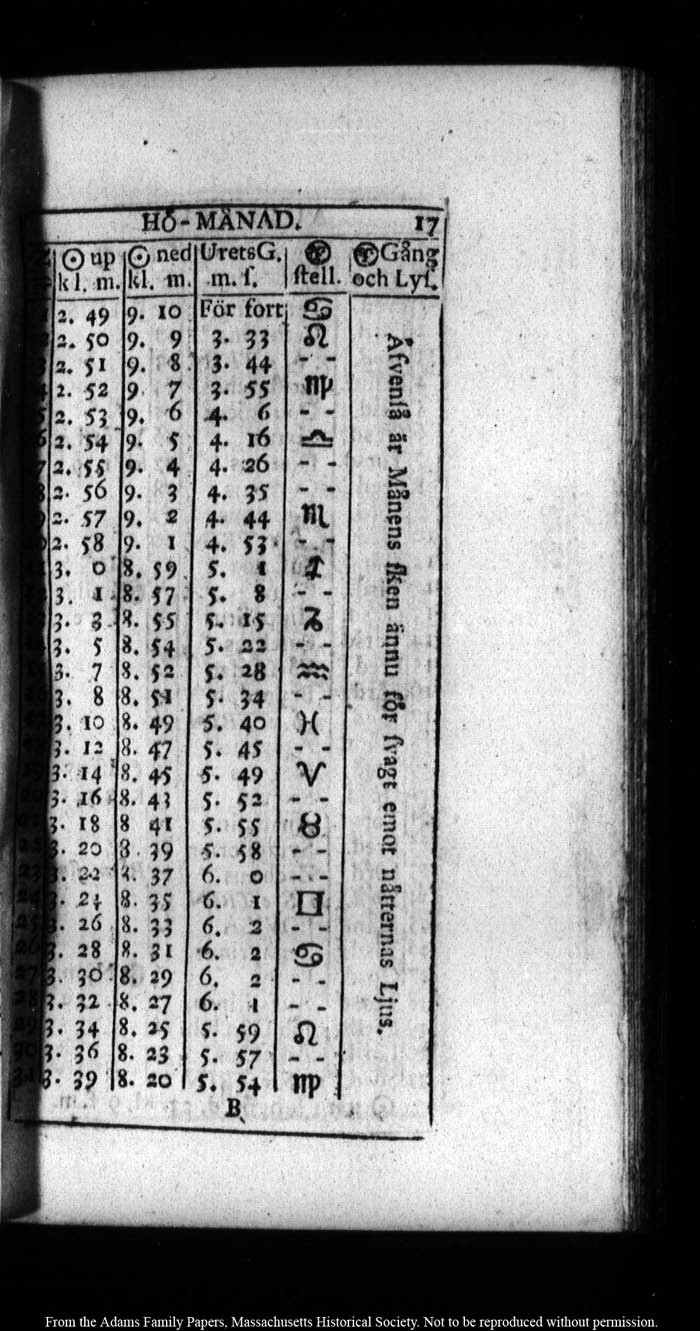 HÖ-MÅNAD. 17
☉ up ☉ ned UretsG. stell. Gång
kl. m. kl. m. m. ſ. och Lyſ.
2. 49 9. 10 För fort ♋
2. 50 9. 9 3. 33 ♌
2. 51 9. 8 3. 44 - -
4 2. 52 9 7 3. 55 ♍
5 2. 53 9. 6 4. 6 - -
6 2. 54 9. 5 4. 16 ♎
7 2. 55 9. 4 4. 26 - -
8 2. 56 9. 3 4. 35 - -
9 2. 57 9. 2 4. 44 ♏
2. 58 9. 1 4. 53 - -
3. 0 8. 59 5. 1 ♐
3. 1 8. 57 5. 8 - -
3. 3 8. 55 5. 15 ♑
3. 5 8. 54 5. 22 - -
3. 7 8. 52 5. 28 ♒
3. 8 8. 51 5. 34 - -
3. 10 8. 49 5. 40 ♓
3. 12 8. 47 5. 45 - -
3. 14 8. 45 5. 49 ♈
3. 16 8. 43 5. 52 - -
3. 18 8 41 5. 55 ♉
3. 20 8. 39 5. 58 - -
23 3. 22 8. 37 6. 0 - -
24 3. 24 8. 35 6. 1 ♊
25 3. 26 8. 33 6. 2 - -
26 3. 28 8. 31 6. 2 ♋
27 3. 30 8. 29 6. 2 - -
28 3. 32 8. 27 6. 1 - -
29 3. 34 8. 25 5. 59 ♌
30 3. 36 8. 23 5. 57 - -
31 3. 39 8. 20 5. 54 ♍
Åfvenſå är Månens ſken ännu för ſvagt emot nätternas Ljus.
B
From the Adams Family Papers, Massachusetts Historical Society. Not to be reproduced without permission.